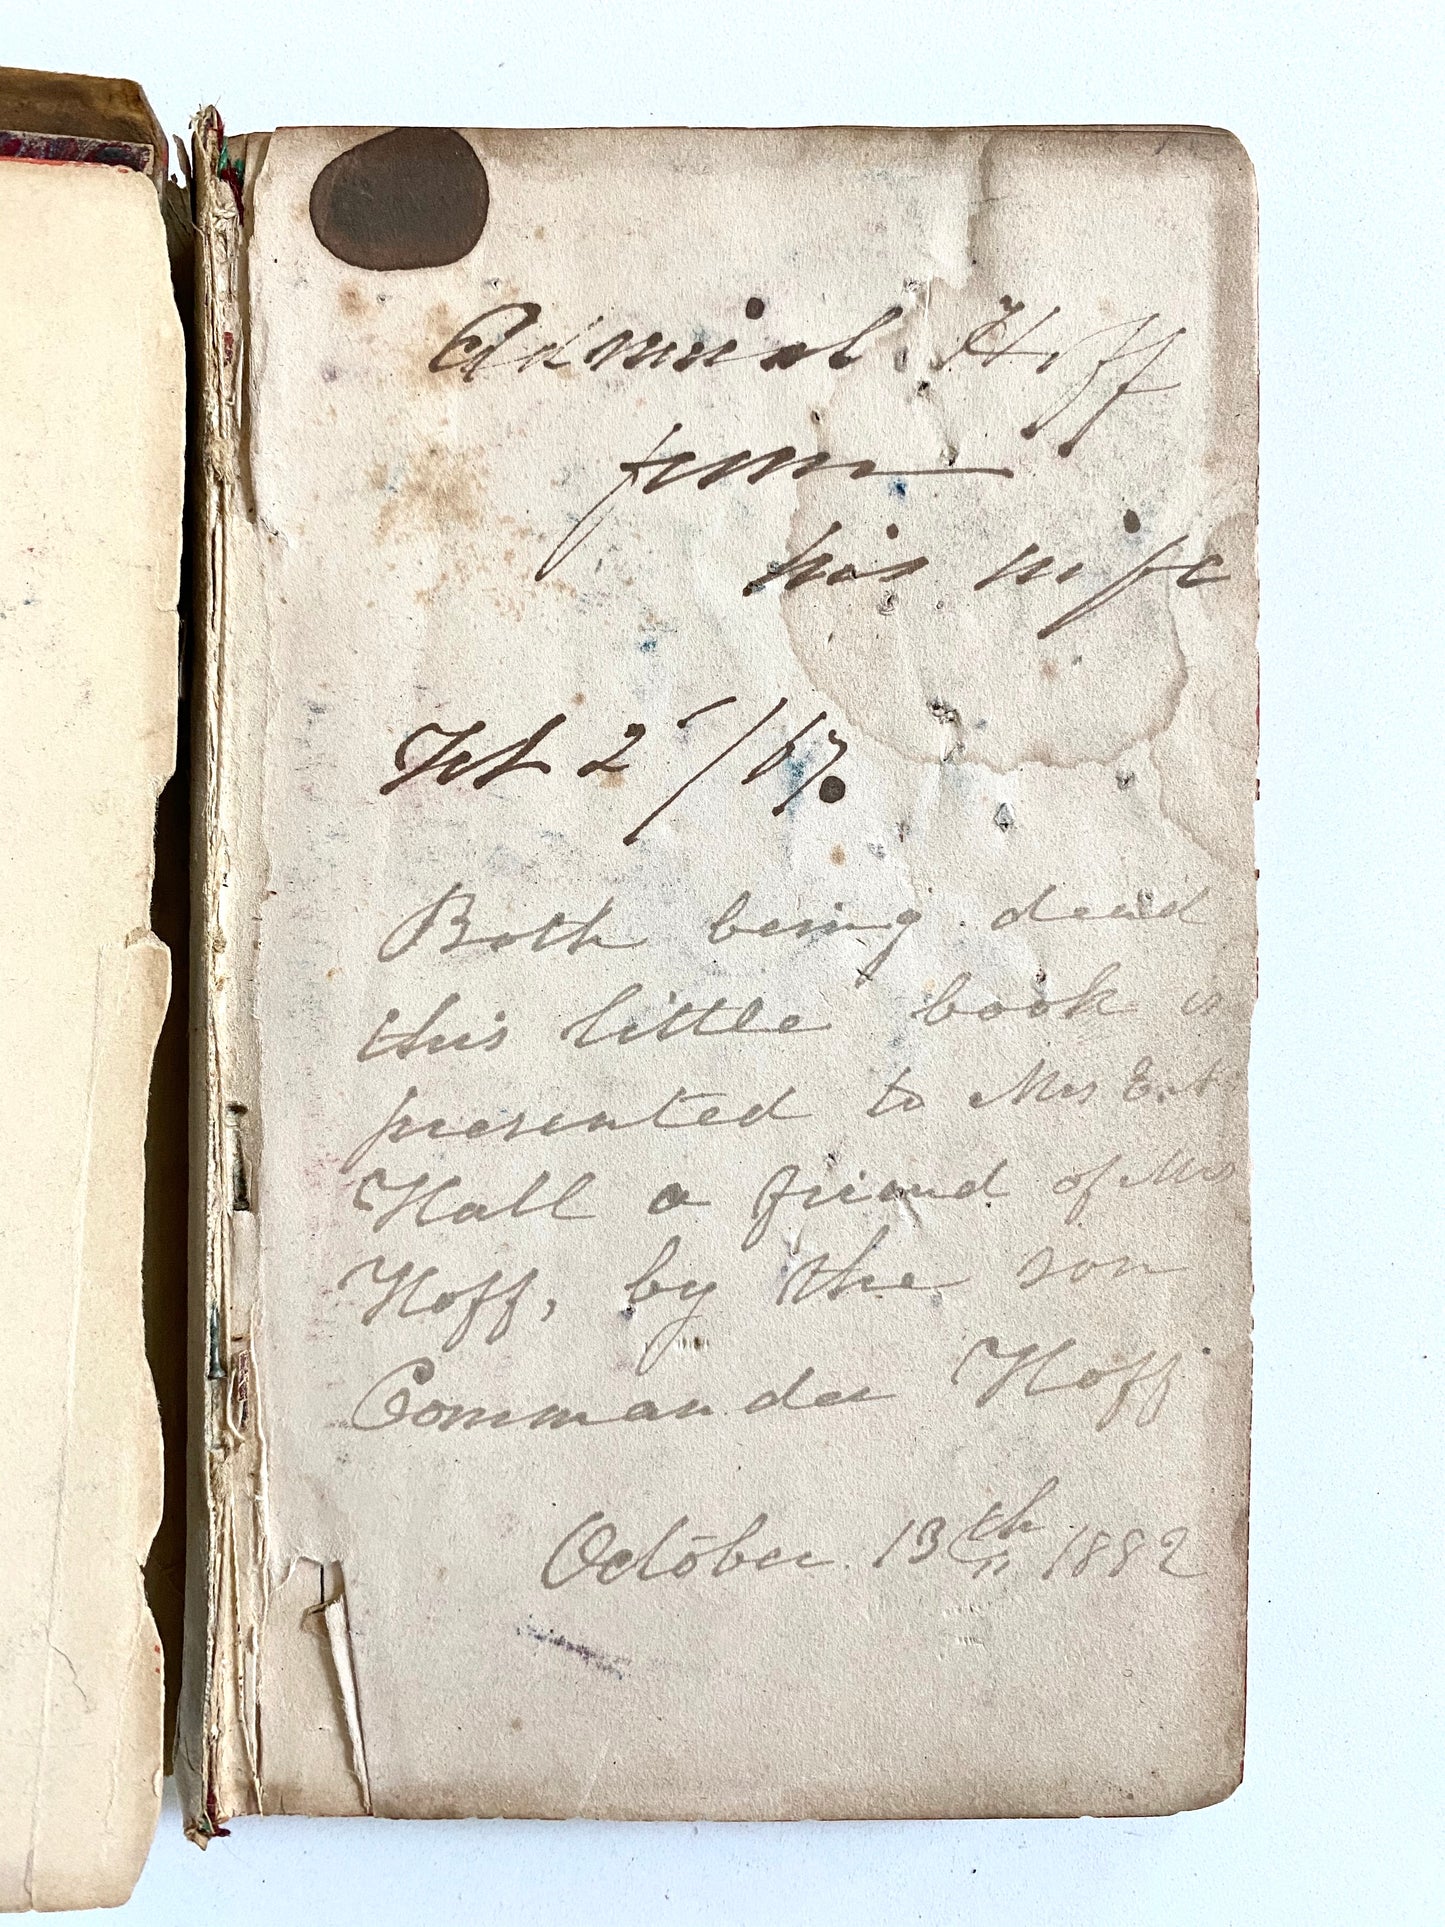 Admiral Hoff
from
his wife
Feb 2 /67.
Both being dead
this little book is
presented to Mrs
Hall a friend of Mrs
Hoff, by the son
Commander Hoff
October 13th 1882